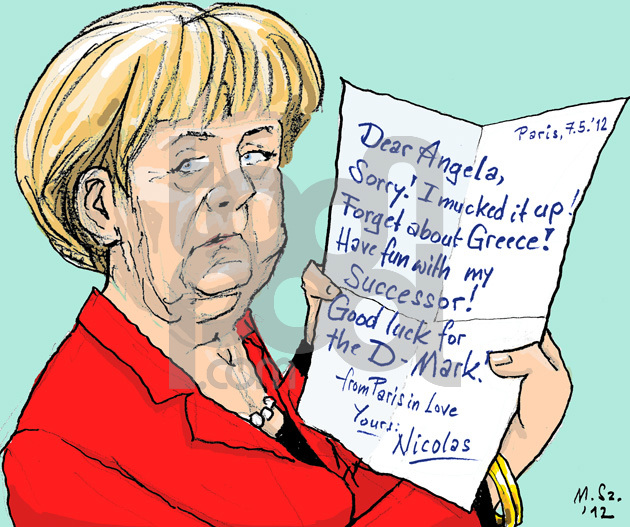 Paris, 7.5.'12
Dear Angela,
Sorry! I mucked it up!
Forget about Greece!
Have fun with my
Successor!
Good luck for
the D-Mark!
from Paris in Love
Yours:
Nicolas
M. Sz.
'12
.com